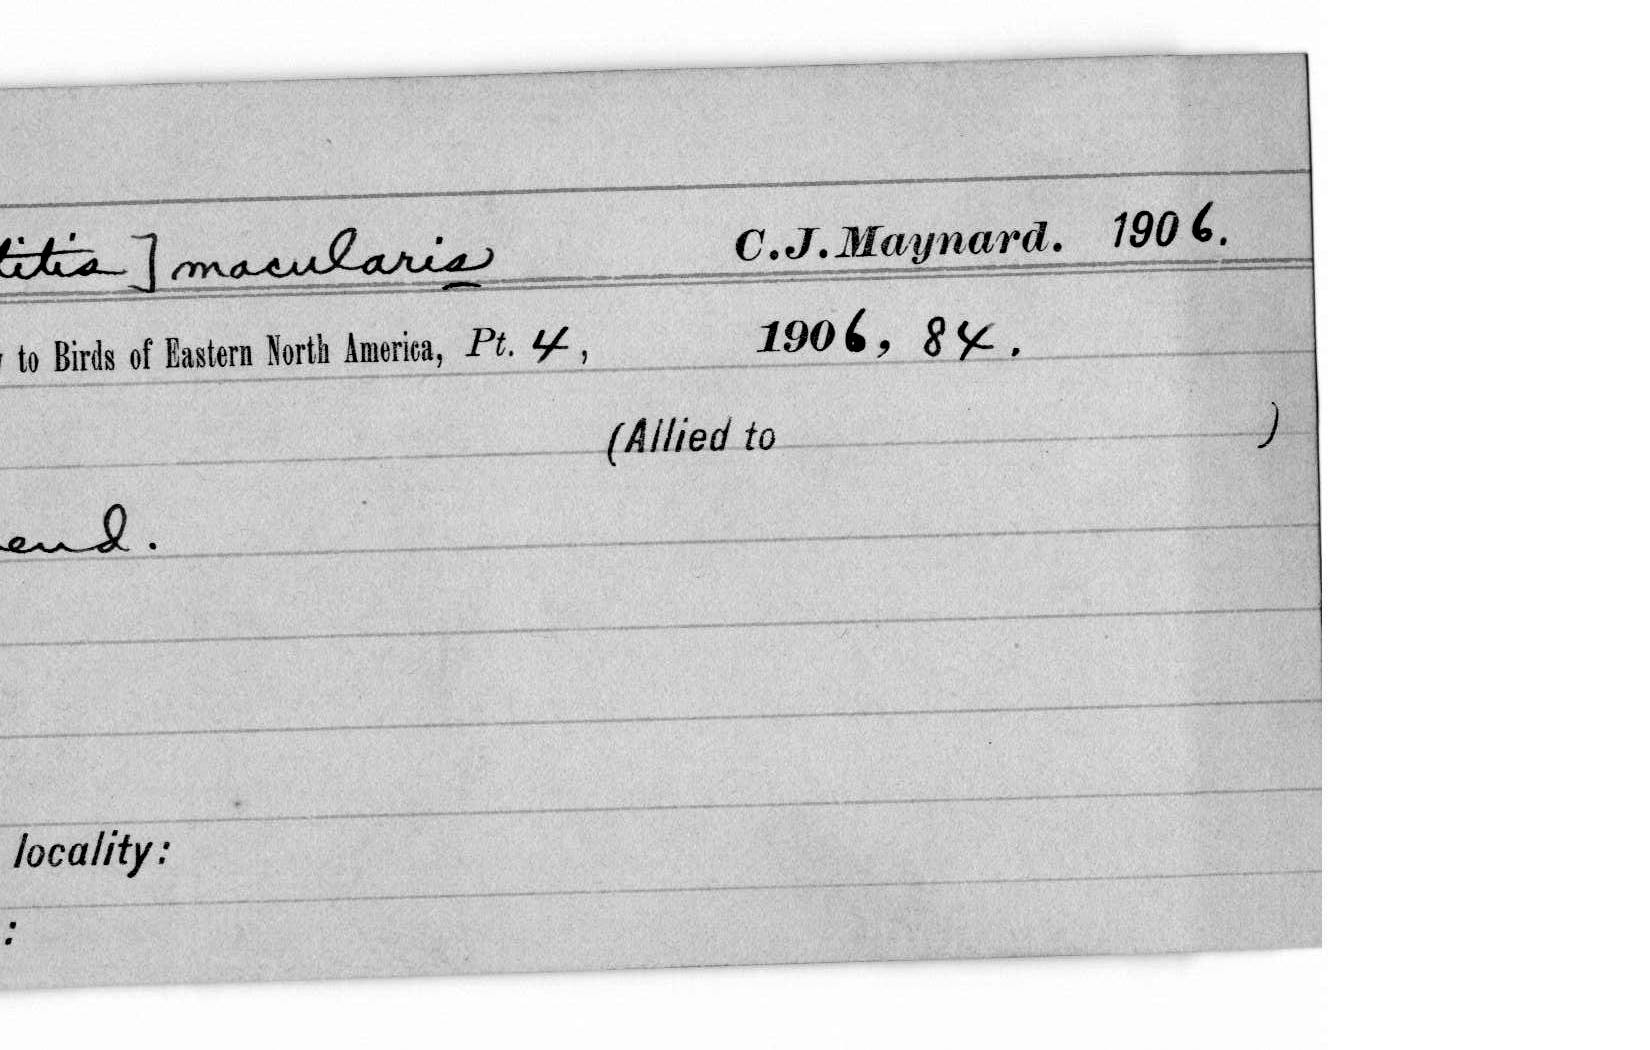 titis] macularis C.J. Maynard. 1906.
to Birds of Eastern North America, Pt. 4, 1906, 84.
(Allied to )
end.
locality:
: